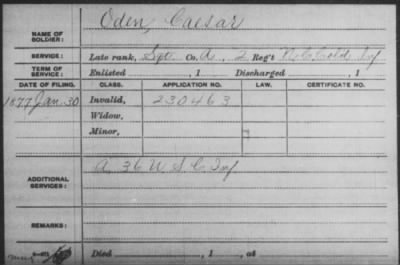 Oden, Caesar
NAME OF SOLDIER:
SERVICE: Late rank, Sgt. Co. A, 2 Reg't N.C. Cold. Inf
TERM OF SERVICE: Enlisted , 1 Discharged , 1
DATE OF FILING. CLASS. APPLICATION NO. LAW. CERTIFICATE NO.
1877 Jan. 30 Invalid, 230463
Widow,
Minor,
A 36 U S C Inf
ADDITIONAL SERVICES:
REMARKS:
Died , 1 , at